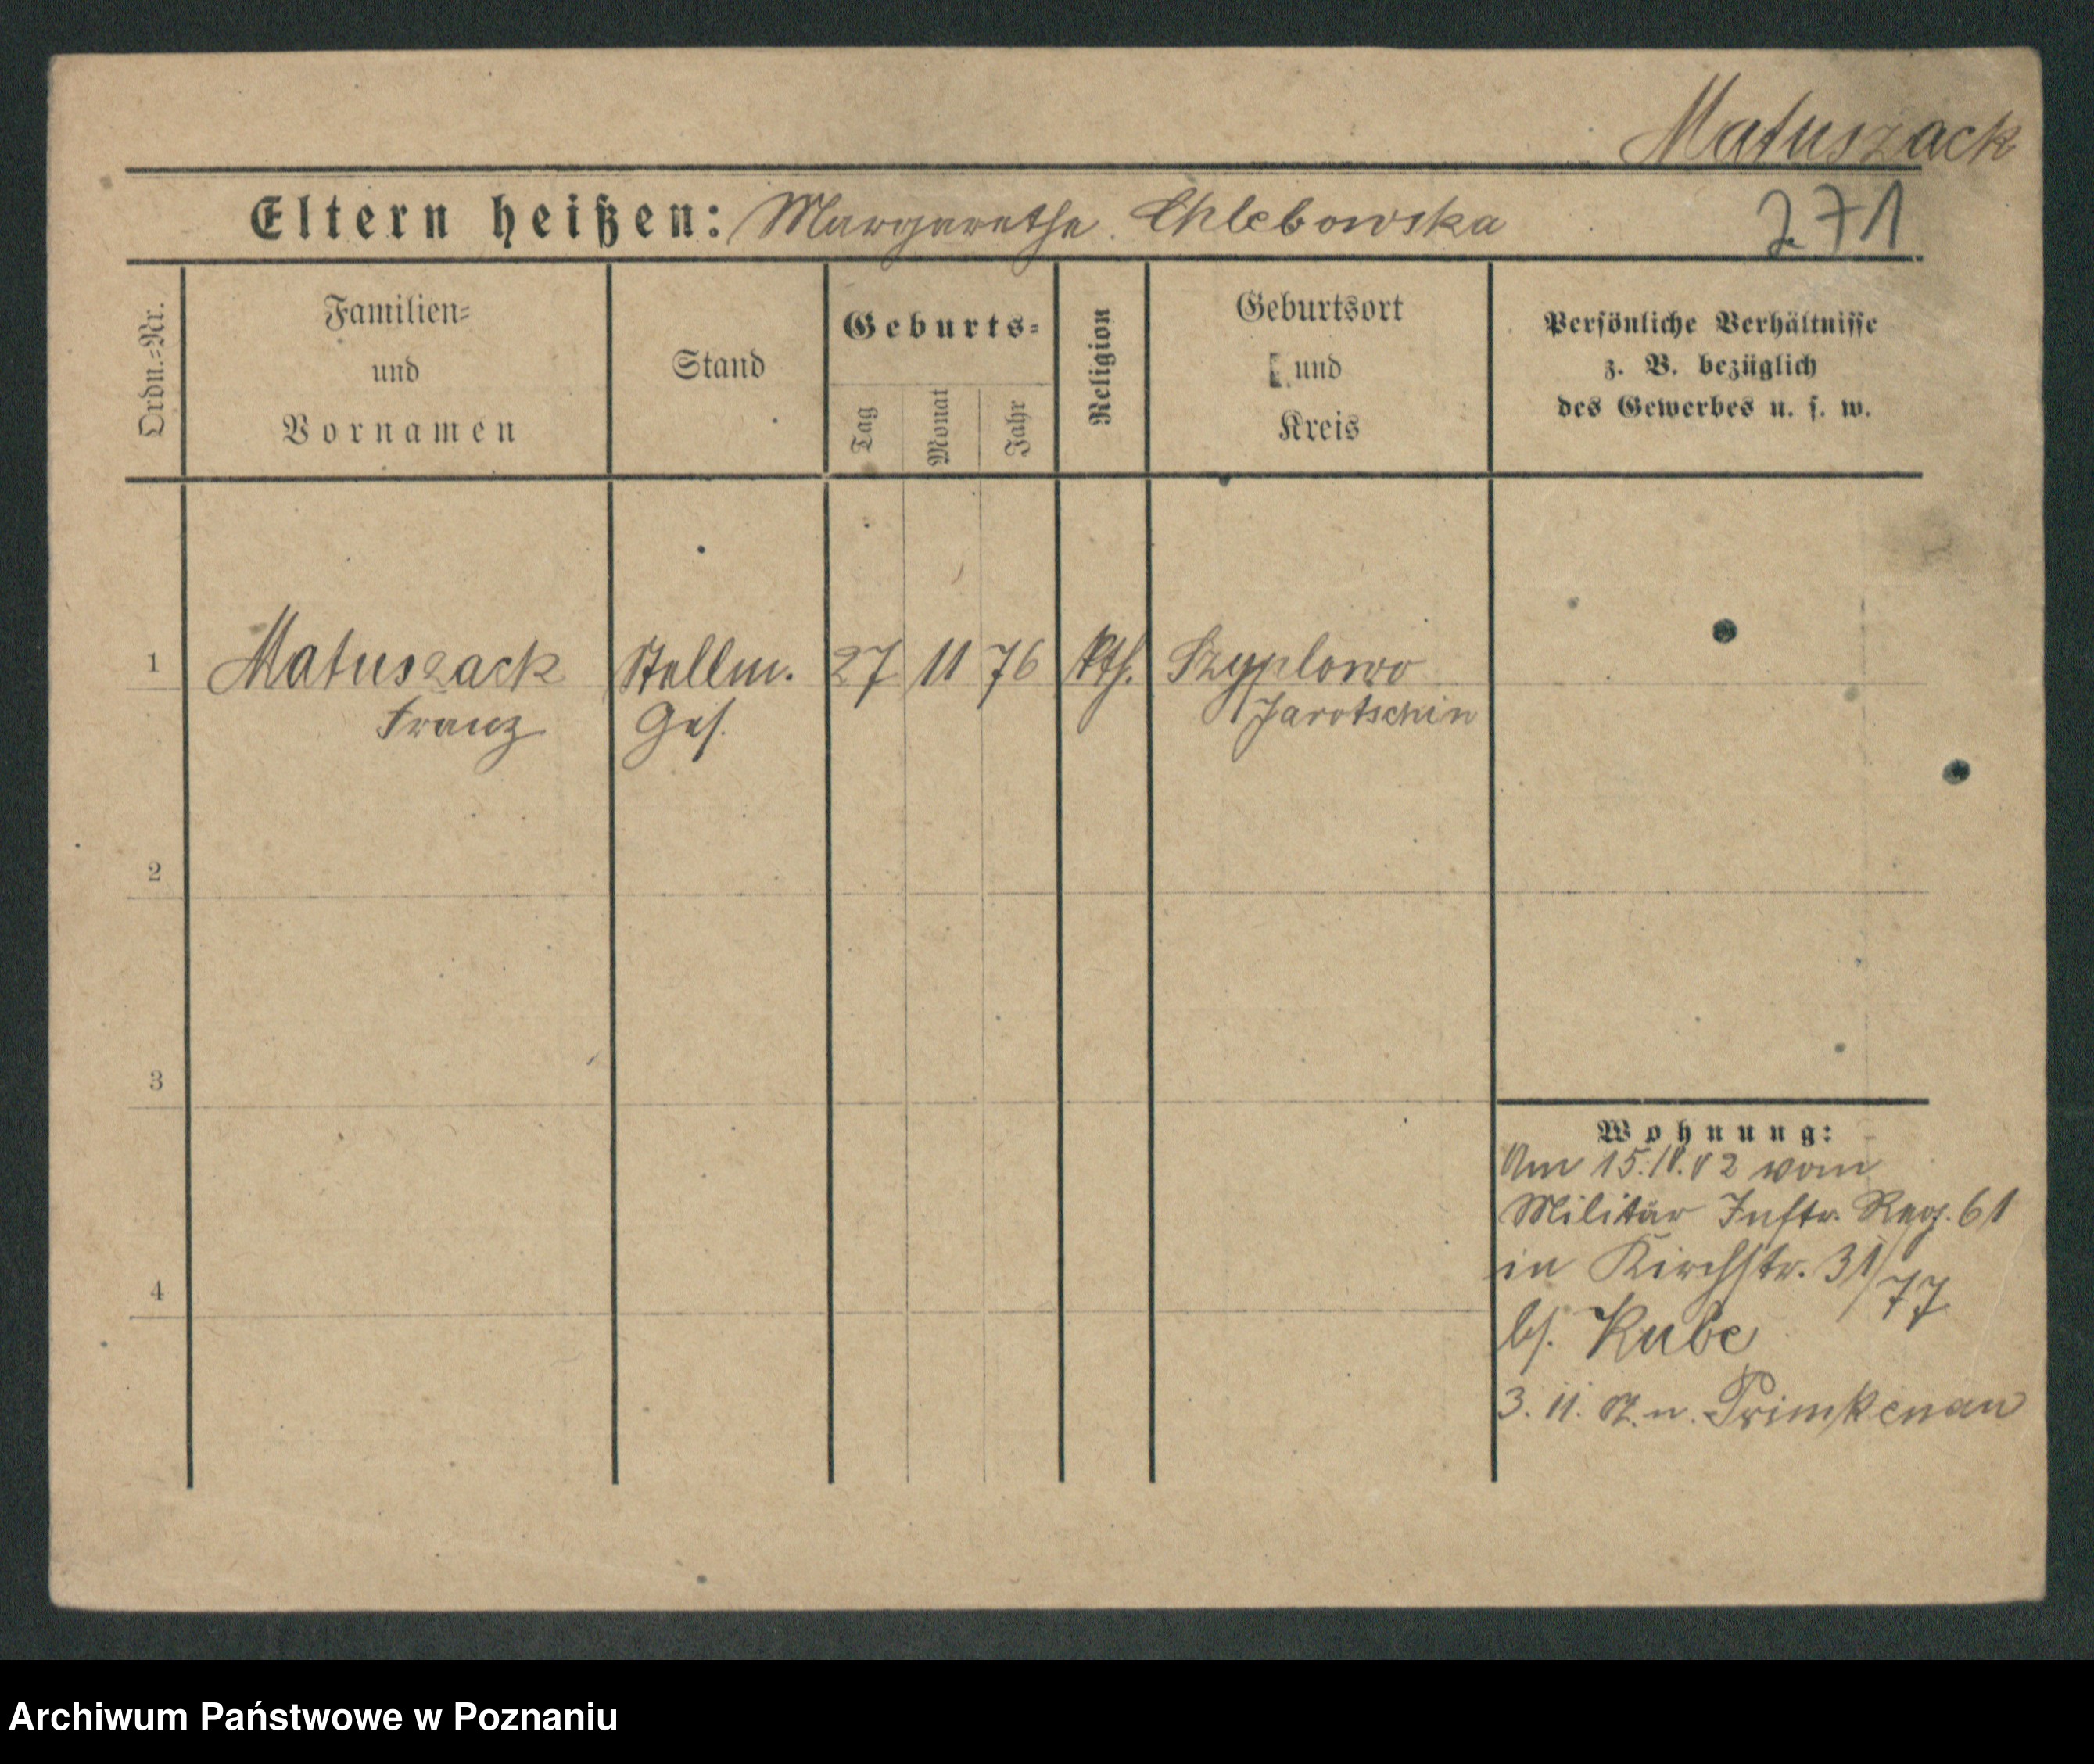 Matuszack
Eltern heißen: Margarethe Chlebowska
271
Ordn.=Nr.
Familien=
und
Vornamen
Stand
Geburts=
Tag
Monat
Jahr
Religion
Geburtsort
und
Kreis
Persönliche Verhältnisse
z. B. bezüglich
des Gewerbes u. s. w.
1 Matuszack Stellm. 27 11 76 kth. Szyplowo
Franz Ges. Jarotschin
2
3
4
Wohnung:
Am 15. vom
Militär Inftr. Reg. 61
in Kirchstr. 31/77
bs. Kube
3. 11. n. Primkenau
Archiwum Państwowe w Poznaniu